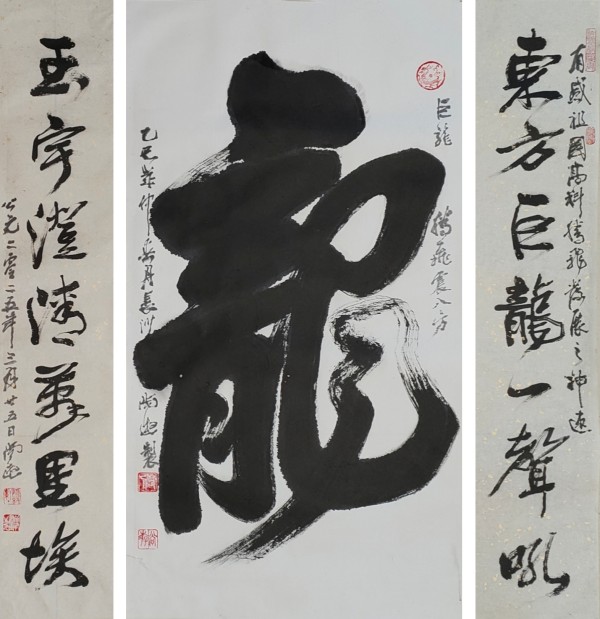 有感祖國高科騰飛發展之神速
東方巨龍一聲吼
巨龍 騰飛震八方
龍
乙巳歲仲春月長沙 製
玉宇澄清萬里埃
公元二零二五年三月廿五日